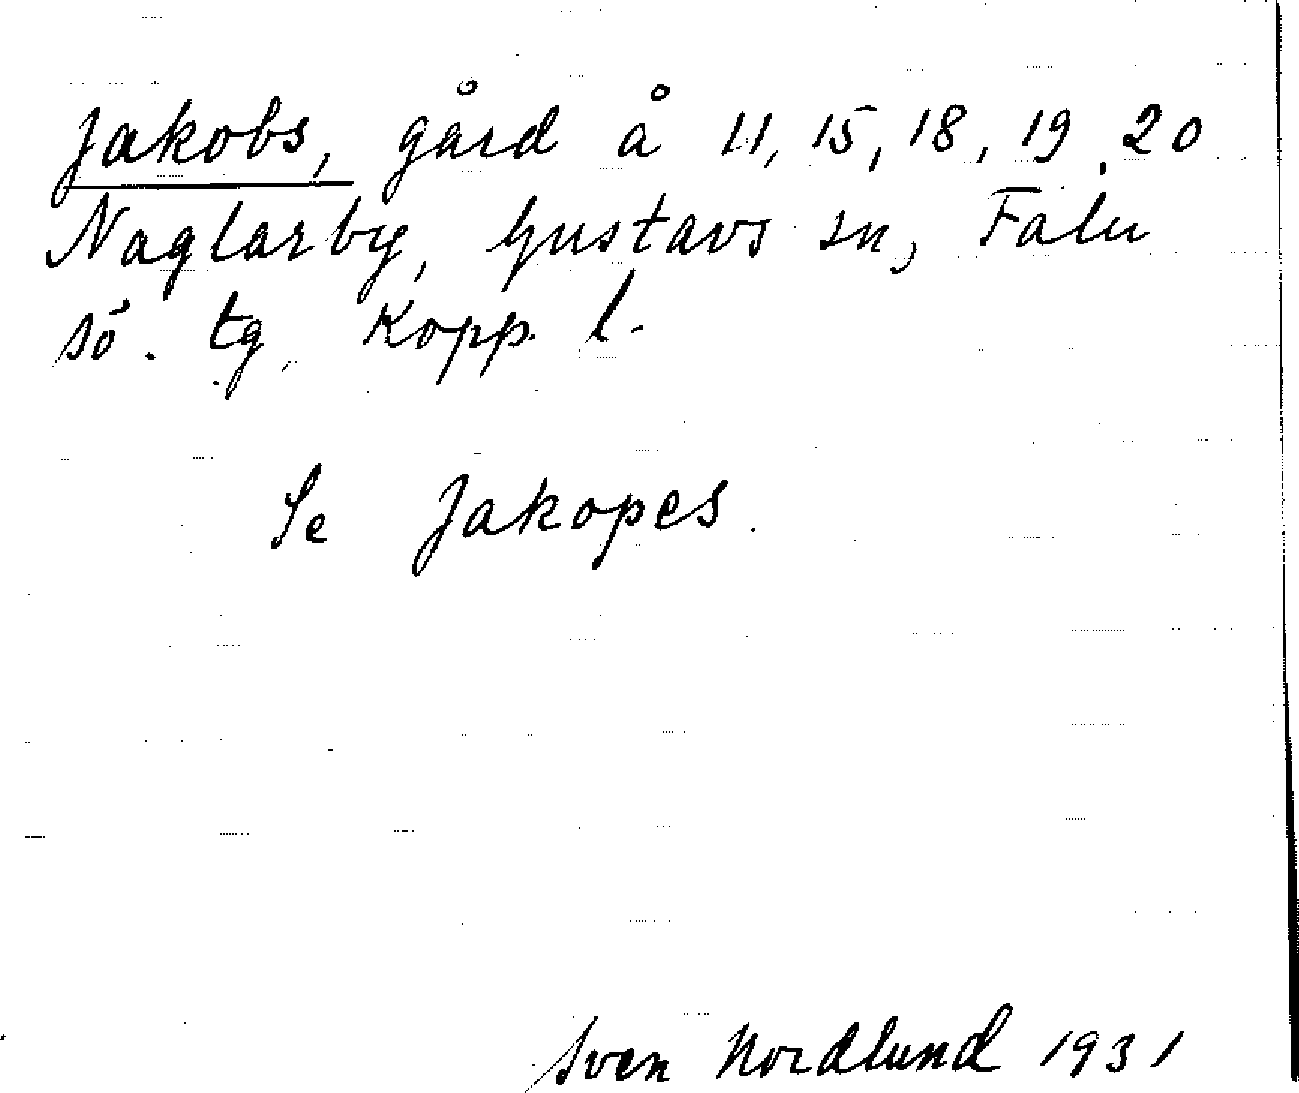 Jakobs, gård å 11, 15, 18, 19, 20
Naglarby, Gustavs sn, Falu
sö. tg, Kopp. l.
Se Jakopes.
Sven Nordlund 1931